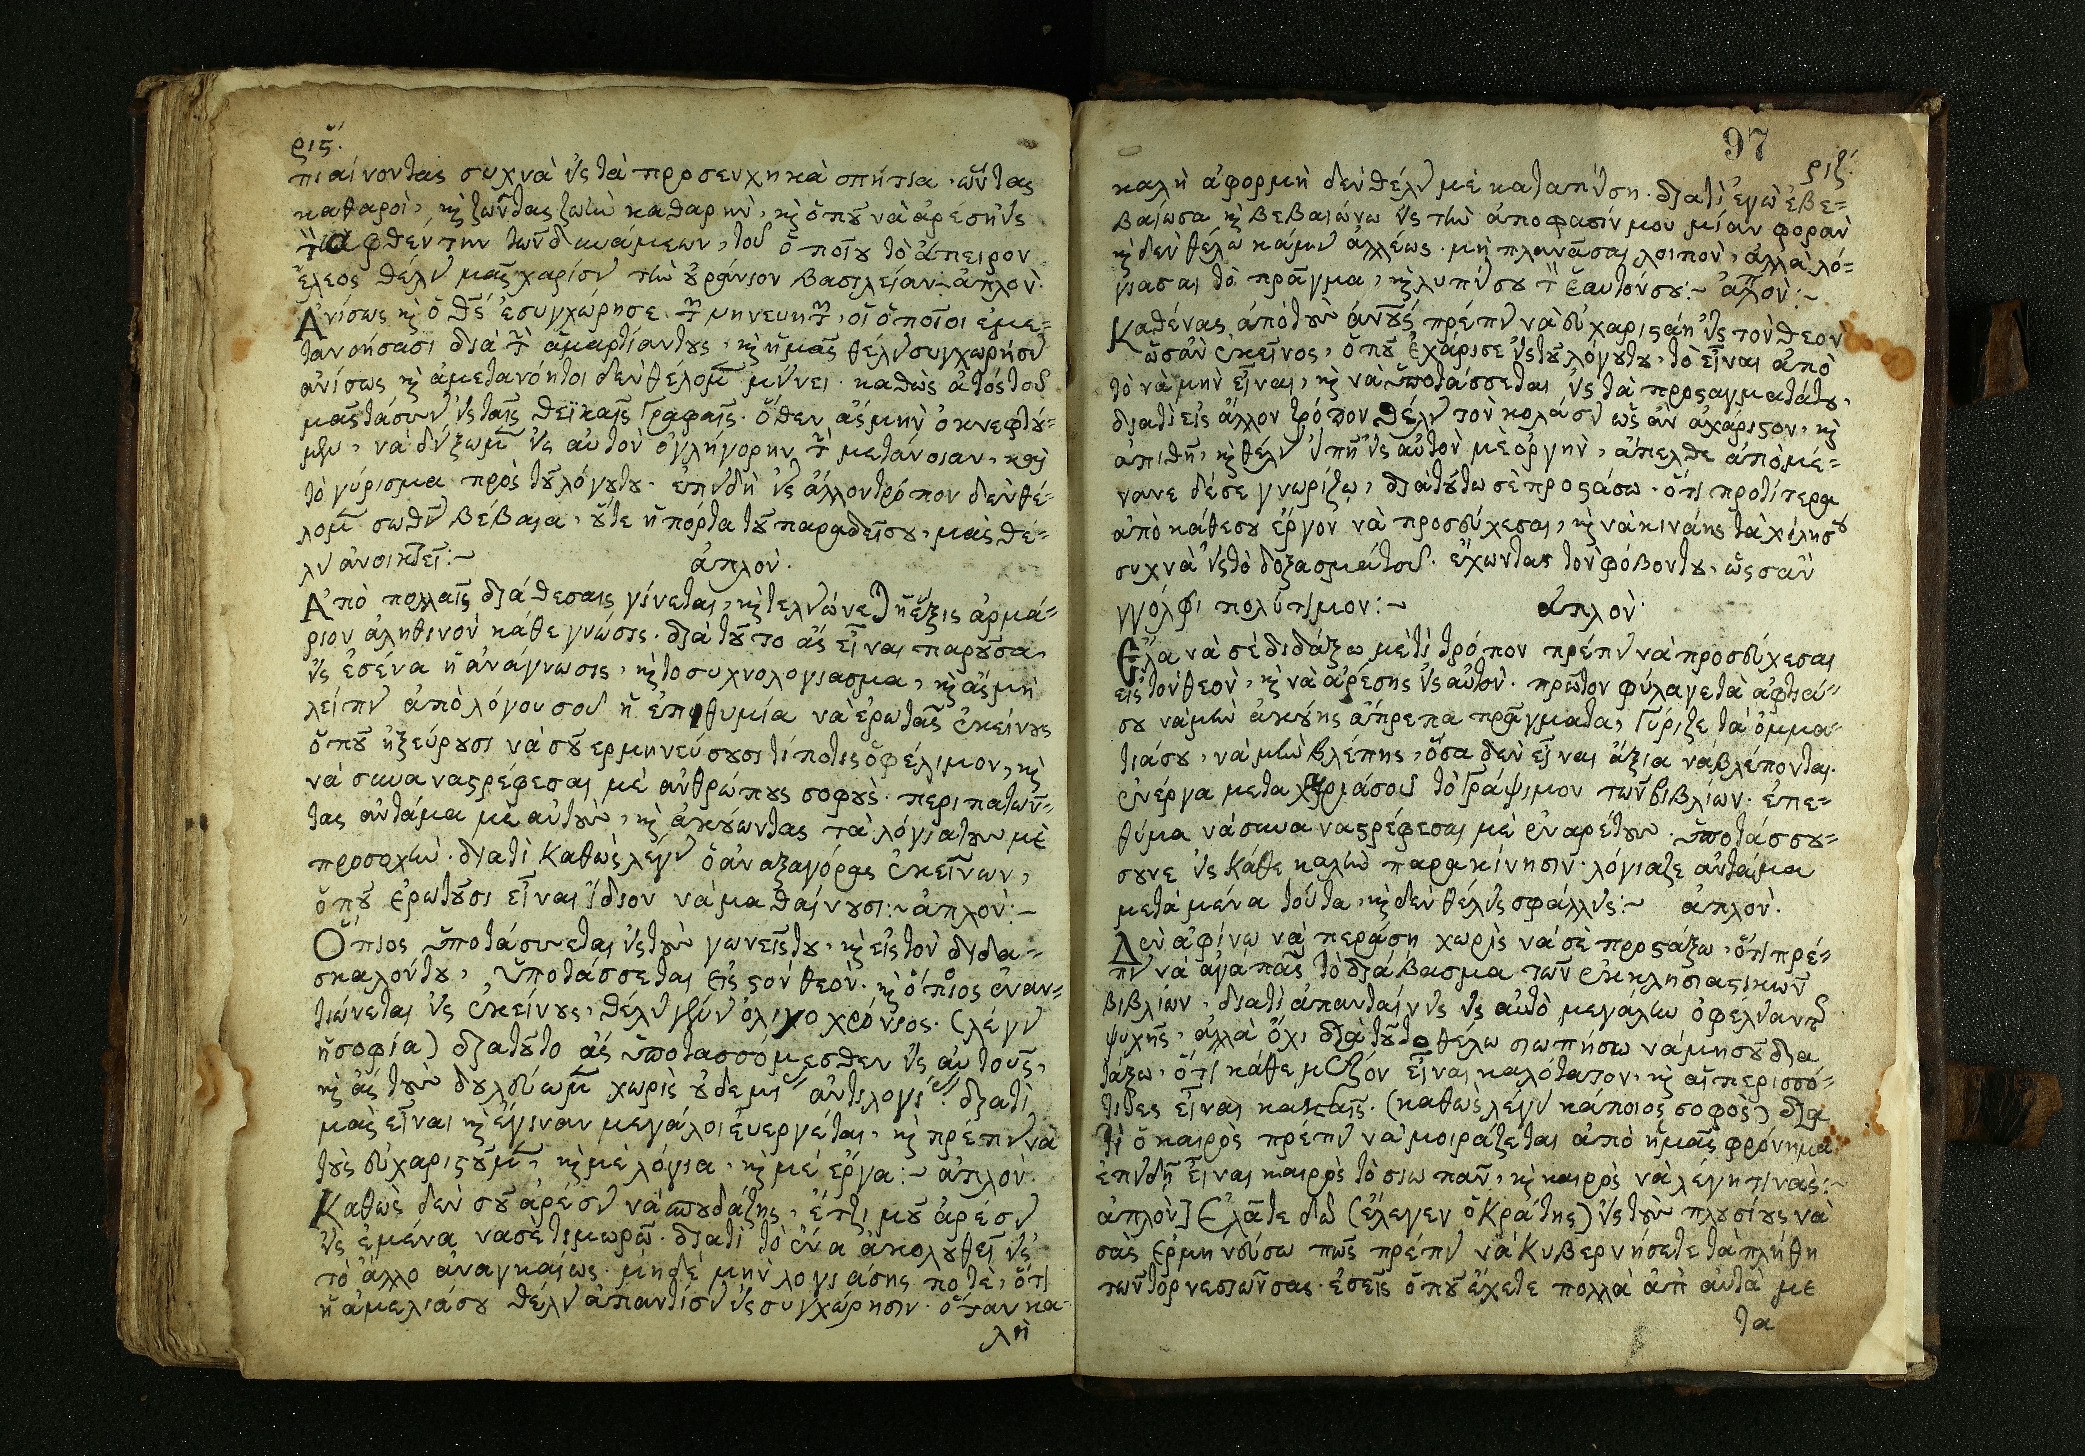 ριϛ΄.
πιαίνοντας συχνὰ εἰς τὰ προσευχηκὰ σπήτια, ὦντας
καθαροὶ, κὶ ζῶντας ζωὴν καθαρὴν, κὶ ὁποῦ νὰ ἀρέσῃ εἰς
ἀφθέντην τῶν δυνάμεων, τοῦ ὁποίου τὸ ἄπειρον
ἔλεος θέλει μᾶς χαρίσει τὴν οὐράνιον βασιλείαν. ἁπλὸν.
Ἀνίσως κὶ ὁ θεὸς ἐσυγχώρησε, οἱ ὁποῖοι ἐμε-
τανοήσασι διὰ ἁμαρτίαν τους, κὶ ἡμᾶς θέλει συγχωρήσει
ἀνίσως κὶ ἀμετανόητοι δὲν θέλομεν μείνει. καθὼς
μᾶς τάσσει εἰς ταῖς θεϊκαῖς Γραφαῖς. ὅθεν ἂς μὴν ὀκνεφτοῦ-
μεν, νὰ δείξωμεν εἰς αὐτὸν ὀγλήγορην μετάνοιαν, καὶ
τὸ γύρισμα πρὸς τοῦ λόγου του. ἐπειδὴ εἰς ἄλλον τρόπον δὲν θέ-
λομεν σωθεῖ βέβαια, οὔτε ἡ πόρτα τοῦ παραδείσου, μᾶς θέ-
λει ἀνοικτεῖ:~ ἁπλὸν.
Ἀπὸ πολλαῖς διάθεσαις γίνεται, κὶ τελειώνεται ἡ ἕξις ἀρμά-
ριον ἀληθινὸν κάθε γνώσις. διὰ τοῦτο ἂς εἶναι παροῦσα
εἰς ἐσένα ἡ ἀνάγνωσις, κὶ το συχνολογιασμα, κὶ ἂς μὴ
λείπει ἀπὸ λόγου σου ἡ ἐπιθυμία νὰ ἐρωτᾶς ἐκείνους
ὁποῦ ἠξεύρουσι νὰ σοῦ ερμηνεύσουσι τίποτις ὀφέλιμον, κὶ
νὰ συναναστρέφεσαι μὲ ἀνθρώπους σοφοὺς. περιπατῶν-
τας ἀντάμα με αὐτοὺς, κὶ ἀκούωντας τὰ λόγια τους μὲ
προσοχὴν. διατὶ καθὼς λέγει ὁ ἀναξαγόρας ἐκεῖνων,
ὁποῦ ἐρωτοῦσι εἶναι ἴδιον νὰ μαθαίνουσι:~ ἁπλὸν:~
Ὅπιος ὑποτάσσεται εἰς τοὺς γωνεῖς του, κὶ εἰς τὸν διδα-
σκαλόν του, ὑποτάσσεται εἰς τὸν θεὸν. κὶ ὅπιος ἐναν-
τιώνεται εἰς ἐκείνους, θέλει ζεῖν ὀλιγοχρόνιος. (λέγει
ἡ σοφία) διατοῦτο ἂς ὑποτασσόμεσθεν εἰς αὐτοὺς,
κὶ ἂς τοὺς δουλεύωμεν χωρὶς οὐδεμιὰ ἀντιλογιὰ. διατὶ
μᾶς εἶναι κὶ ἔγιναν μεγάλοι ἐυεργέται, κὶ πρέπει νὰ
τοὺς εὐχαριστοῦμεν, κὶ μὲ λόγια, κὶ μὲ ἔργα:~ ἁπλὸν.
Καθὼς δὲν σοῦ ἀρέσει νὰ σπουδάζης, ἔτζι μοῦ ἀρέσει
εἰς ἐμένα νασὲ τιμωρῶ. διατὶ τὸ ἕνα ἀκολυθεῖ εἰς
τὸ ἄλλο ἀναγκαίως. μηδὲ μὴν λογιάσης ποτὲ, ὅτι
ἡ ἀμελιάσου θέλει ἀπαντίσει εἰς συγχώρησιν. ὅταν κα-
λὴ
97
ριζ΄.
καλὴ ἀφορμὴ δὲν θέλει μὲ καταπείση. διατὶ ἐγὼ ἐβε-
βαίωσα κὶ βεβαιώνω εἰς τὴν ἀποφασίν μου μίαν φορὰν
κὶ δὲν θέλω κάμει ἀλλέως. μὴ πλανᾶσαι λοιπὸν, ἀλλὰ λό-
γιασαι τὸ πρᾶγμα, κὶ λυπήσου τὸν ἑαυτόνσου:~ ἁπλὸν:~
Καθένας ἀπὸ τοὺς ἀνθρώπους πρέπει νὰ εὐχαριστάῃ εἰς τὸν θεὸν
ὡσὰν ἐκεῖνος, ὁποῦ ἐχάρισε εἰς τοῦ λόγουτου, τὸ εἶναι ἀπὸ
τὸ νὰ μὴν εἶναι, κὶ νὰ ὑποτάσσεται εἰς τὰ προσταγματάτου,
διατὶ εἰς ἄλλον τρόπον θέλει τὸν κολάσει ὡς ἂν ἀχάριστον, κὶ
ἀπιθῆ, κὶ θέλει εἰπῆ εἰς αὐτὸν μὲ ὀργὴν, ἄπελθε ἀπὸ μέ-
νανε δέσε γνωρίζω, διὰτοῦτω σὲ προστάσω. ὅτι προτίτερα
ἀπὸ κάθεσου ἔργον νὰ προσεύχεσαι, κὶ νὰ κινάης τὰ χείλησου
συχνὰ εἰς τὸ δοξασμάτου. ἔχωντας τὸν φόβοντου, ὥς σαὶν
γγόλφι πολύτιμον:~ ἁπλὸν.
Ἔλα νὰ σὲ διδάξω μὲ τί τρόπον πρέπει νὰ προσεύχεσαι
εἰς τὸν θεὸν, κὶ νὰ ἀρέσης εἰς αὐτὸν. πρῶτον φύλαγε τὰ ἀφτιά-
σου νὰ μὴν ἀκούης ἄπρεπα πράγματα, Γύριζε τὰ ὄμμα-
τιάσου, νὰ μὴν βλέπης, ὅσα δὲν εἶναι ἄξια νὰ βλέπονται.
ἐνέργα μετα χερμάσου τὸ Γράψιμον τῶν βιβλίων. ἐπε-
θύμα νὰ συναναστρέφεσαι μὲ ἐναρέτους. ὑποτάσσου-
σουνε εἰς κάθε καλὴν παρακίνησιν. λόγιαζε ἀντάμα
μετὰ μένα τούτα, κὶ δὲν θέλεις σφάλλεις:~ ἁπλὸν.
Δὲν ἀφίνω νὰ περάση χωρὶς νὰ σὲ προστάξω, ὅτι πρέ-
πει νὰ ἀγαπᾶς τὸ διάβασμα τῶν ἐκκλησιαστικῶν
βιβλίων, διατὶ ἀπανταίνεις εἰς αὐτὸ μεγάλην ὀφέλειαν τῆς
ψυχῆς, ἀλλὰ ὄχι διὰ τοῦτο θέλω σιωπήσω νὰ μὴ σοῦ δια
τάξω, ὅτι κάθε μέτζόν εἶναι καλότατον, κὶ αἱ περισσό-
τιδες εἶναι κακαῖς. (καθὼς λέγει κάποιος σοφὸς) δια
τὶ ὁ καιρὸς πρέπει νὰ μοιράζεται ἀπὸ ἡμᾶς φρόνημα
ἐπειδὴ εἶναι καιρὸς τὸ σιωπᾶν, κὶ καιρὸς νὰ λέγη τινὰς:~
ἁπλὸν] Ἐλᾶτε ἐδῶ (ἔλεγεν ὁ Κράτης) εἰς τοὺς πλουσίους νὰ
σᾶς ἑρμηνεύσω πῶς πρέπει νὰ Κυβερνήσετε τὰ πλήθη
τῶν τορνεσιῶνσας. ἐσεῖς ὁποῦ ἔχετε πολλὰ ἀπ' αὐτὰ με
τα